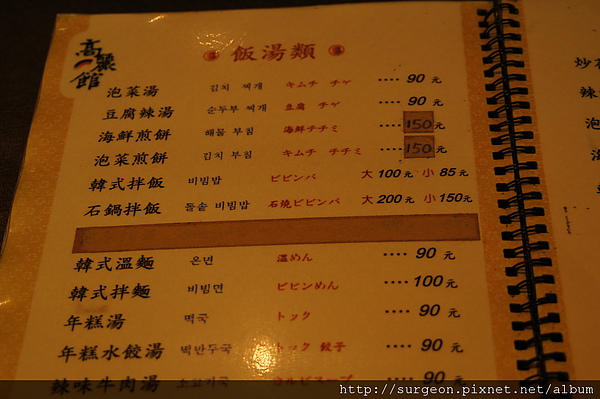 高麗館
飯湯類
泡菜湯 김치 찌개 キムチ チゲ ···· 90元
豆腐辣湯 순두부 찌개 豆腐 チゲ ···· 90元
海鮮煎餅 해물 부침 海鮮チヂミ ···· 150元
泡菜煎餅 김치 부침 キムチ チヂミ ···· 150元
韓式拌飯 비빔밥 ビビンバ 大100元 小85元
石鍋拌飯 돌솥 비빔밥 石焼ビビンバ 大200元 小150元
韓式溫麵 온면 温めん ···· 90元
韓式拌麵 비빔면 ビビンめん ···· 100元
年糕湯 떡국 トック ···· 90元
年糕水餃湯 떡만두국 トック 餃子 ···· 90元
辣味牛肉湯 소고기국 カルビスープ 90元
炒
辣
泡
海
http://surgeon.pixnet.net/album